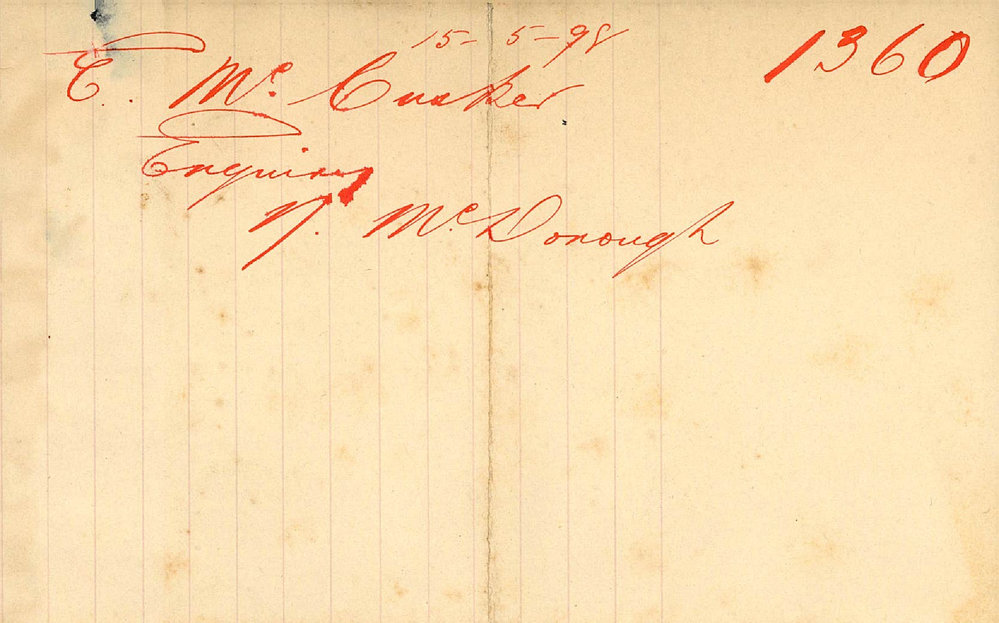 15-5-98
1360
E. Mc Cusker
Enquiry
N. McDonough